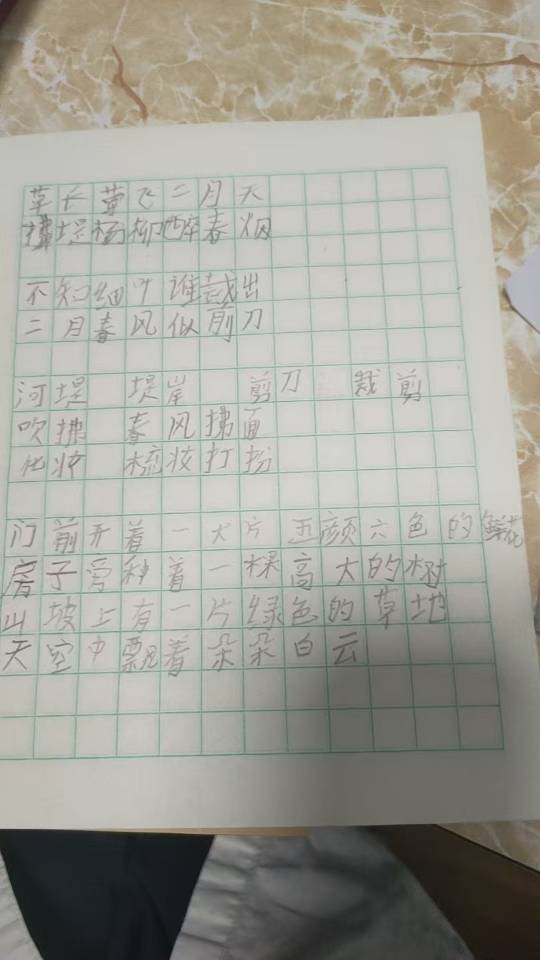 草长莺飞二月天
拂堤杨柳醉春烟
不知细叶谁裁出
二月春风似前刀
河堤 堤岸 剪刀 裁剪
吹拂 春风拂面
化妆 梳妆打扮
门前开着一大片五颜六色的鲜花
房子旁种着一棵高大的树
山坡上有一片绿色的草地
天空中飘着朵朵白云